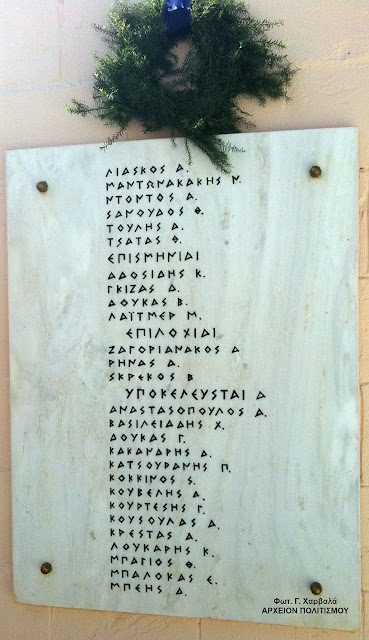 ΛΙΑΣΚΟΣ Δ.
ΜΑΝΤΩΝΑΚΑΚΗΣ Μ.
ΝΤΟΝΤΟΣ Α.
ΣΑΜΟΥΔΟΣ Θ.
ΤΟΥΛΗΣ Δ.
ΤΣΑΤΑΣ Θ.
ΕΠΙΣΜΗΝΙΑΙ
ΑΔΟΣΙΔΗΣ Κ.
ΓΚΙΖΑΣ Δ.
ΔΟΥΚΑΣ Β.
ΛΑΪΤΜΕΡ Μ.
ΕΠΙΛΟΧΙΑΙ
ΖΑΓΟΡΙΑΝΑΚΟΣ Δ
ΡΗΝΑΣ Δ.
ΣΚΡΕΚΟΣ Β
ΥΠΟΚΕΛΕΥΣΤΑΙ Δ
ΑΝΑΣΤΑΣΟΠΟΥΛΟΣ Δ.
ΒΑΣΙΛΕΙΑΔΗΣ Χ.
ΔΟΥΚΑΣ Γ.
ΚΑΚΑΝΑΡΗΣ Δ.
ΚΑΤΣΟΥΡΑΝΗΣ Π.
ΚΟΚΚΙΝΟΣ Σ.
ΚΟΥΒΕΛΗΣ Δ.
ΚΟΥΡΤΕΣΗΣ Γ.
ΚΟΥΣΟΥΛΑΣ Δ.
ΚΡΕΣΤΑΣ Δ.
ΛΟΥΚΑΡΗΣ Κ.
ΜΠΑΓΙΟΣ Θ.
ΜΠΑΛΟΚΑΣ Ε.
ΜΠΕΗΣ Δ.
Φωτ. Γ. Χαρβαλά
ΑΡΧΕΙΟΝ ΠΟΛΙΤΙΣΜΟΥ